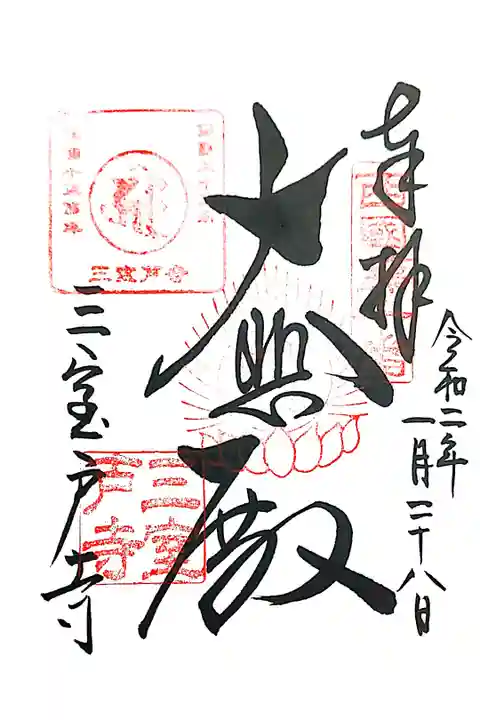 奉拝
令和二年
一月二十八日
大悲殿
三室戸寺
三室戸寺
三室
戸寺